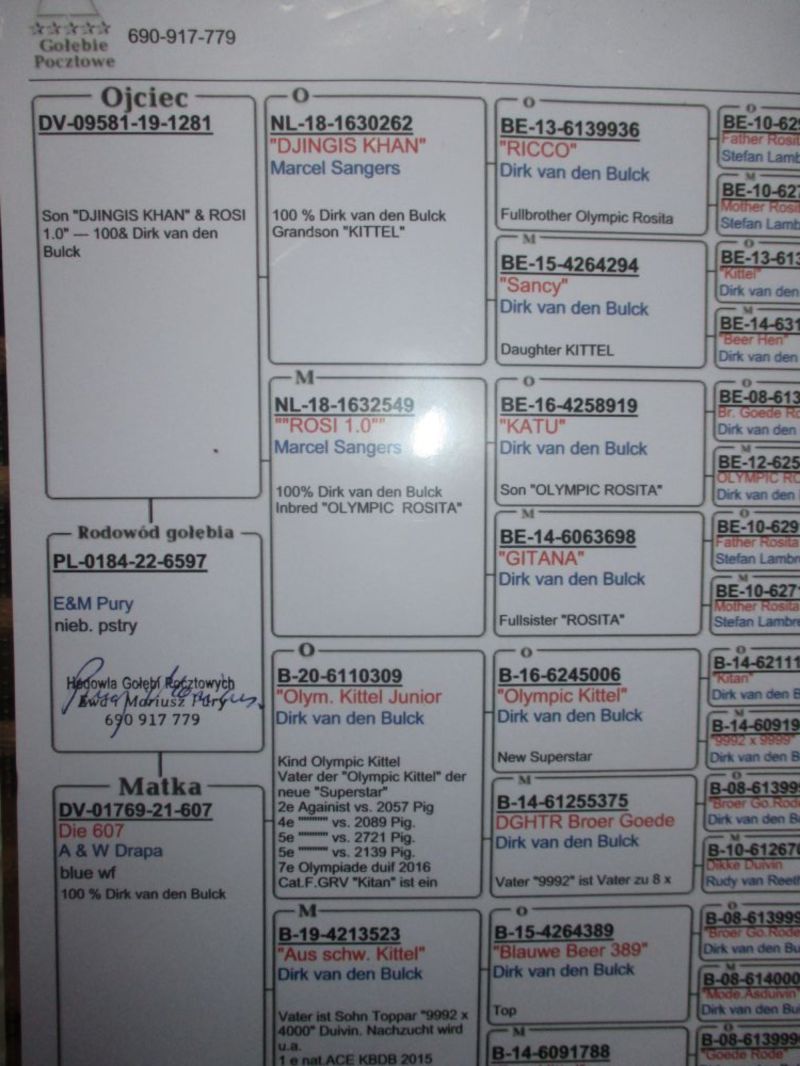 Gołębie
Pocztowe
690-917-779
Ojciec
DV-09581-19-1281
Son "DJINGIS KHAN" & ROSI
1.0" — 100& Dirk van den
Bulck
Rodowód gołębia
PL-0184-22-6597
E&M Pury
nieb. pstry
Hodowla Gołębi Pocztowych
Ewa i Mariusz Pury
690 917 779
Matka
DV-01769-21-607
Die 607
A & W Drapa
blue wf
100 % Dirk van den Bulck
O
NL-18-1630262
"DJINGIS KHAN"
Marcel Sangers
100 % Dirk van den Bulck
Grandson "KITTEL"
M
NL-18-1632549
""ROSI 1.0""
Marcel Sangers
100% Dirk van den Bulck
Inbred "OLYMPIC ROSITA"
O
B-20-6110309
"Olym. Kittel Junior
Dirk van den Bulck
Kind Olympic Kittel
Vater der "Olympic Kittel" der
neue "Superstar"
2e Againist vs. 2057 Pig
4e """"" vs. 2089 Pig.
5e """"" vs. 2721 Pig.
5e """"" vs. 2139 Pig.
7e Olympiade duif 2016
Cat.F.GRV "Kitan" ist ein
M
B-19-4213523
"Aus schw. Kittel"
Dirk van den Bulck
Vater ist Sohn Toppar "9992 x
4000" Duivin. Nachzucht wird
u.a.
1 e nat ACE KBDB 2015
O
BE-13-6139936
"RICCO"
Dirk van den Bulck
Fullbrother Olympic Rosita
M
BE-15-4264294
"Sancy"
Dirk van den Bulck
Daughter KITTEL
O
BE-16-4258919
"KATU"
Dirk van den Bulck
Son "OLYMPIC ROSITA"
M
BE-14-6063698
"GITANA"
Dirk van den Bulck
Fullsister "ROSITA"
O
B-16-6245006
"Olympic Kittel"
Dirk van den Bulck
New Superstar
M
B-14-61255375
DGHTR Broer Goede
Dirk van den Bulck
Vater "9992" ist Vater zu 8 x
O
B-15-4264389
"Blauwe Beer 389"
Dirk van den Bulck
Top
M
B-14-6091788
O
BE-10-629
Father Rosita
Stefan Lamb
M
BE-10-627
Mother Rosi
Stefan Lamb
O
BE-13-613
"Kittel"
Dirk van den
M
BE-14-631
"Beer Hen"
Dirk van den
O
BE-08-613
Br. Goede Ro
Dirk van den
M
BE-12-625
OLYMPIC RO
Dirk van den
O
BE-10-629
Father Rosita
Stefan Lambr
M
BE-10-627
Mother Rosita
Stefan Lambre
O
B-14-62111
"Kitan"
Dirk van den B
M
B-14-60919
"9992 x 9999"
Dirk van den B
O
B-08-613999
"Broer Go.Rode
Dirk van den Bu
M
B-10-612670
Dikke Duivin
Rudy van Reeth
O
B-08-613999
"Broer Go.Rode
Dirk van den Bu
M
B-08-614000
"Mode.Asduivin"
Dirk van den Bu
O
B-08-6139996
"Goede Rode"
Dirk van den Bul